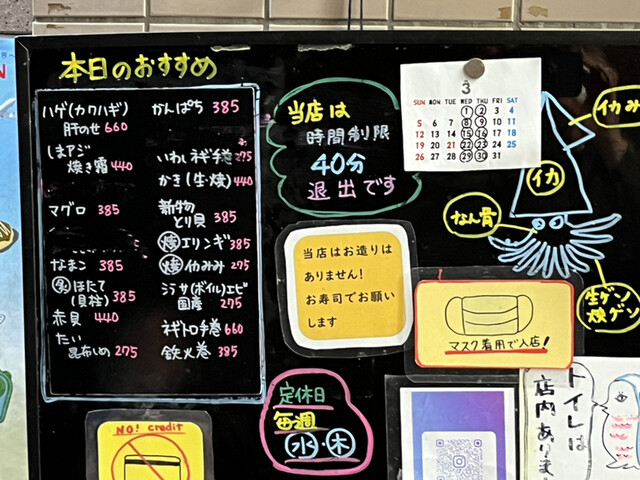 本日のおすすめ
ハゲ(カワハギ)
肝のせ 660
しまアジ
焼き霜 440
マグロ 385
なまこ 385
ほたて
(貝柱) 385
赤貝 440
たい
昆布しめ 275
かんぱち 385
いわしネギ巻 275
かき(生・焼) 440
新物
とり貝 385
焼エリンギ 385
焼イカみみ 275
シラサ(ボイル)エビ
国産 275
ネギトロ手巻 660
鉄火巻 385
当店は
時間制限
40分
退出です
3
SUN MON TUE WED THU FRI SAT
1 2 3 4
5 6 7 8 9 10 11
12 13 14 15 16 17 18
19 20 21 22 23 24 25
26 27 28 29 30 31
イカみみ
イカ
なん骨
生ゲソ
焼ゲソ
当店はお造りは
ありません!
お寿司でお願い
します
マスク着用で入店!
定休日
毎週
水・木
NO! credit
トイレは
店内ありま